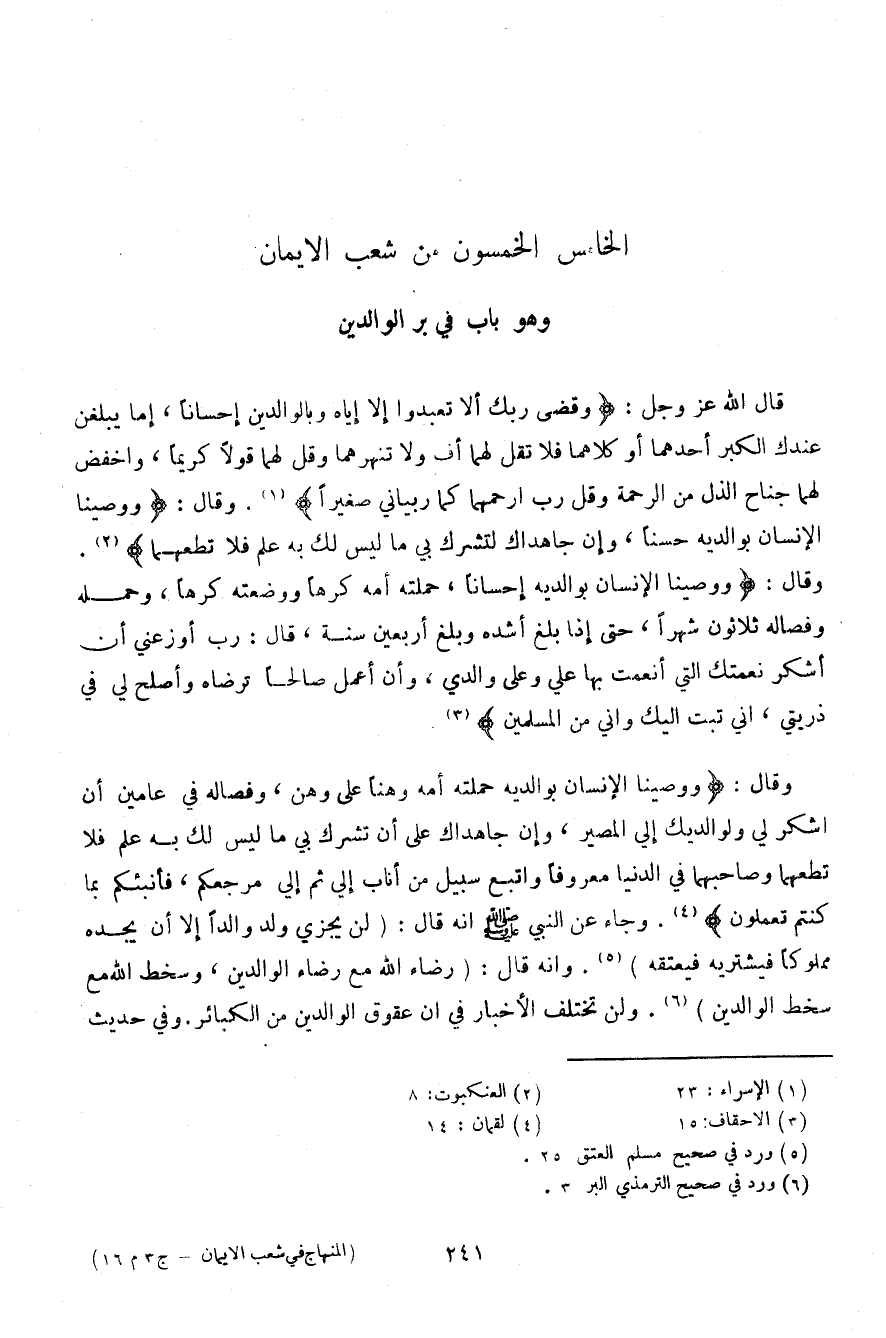 الخامس الخمسون من شعب الايمان
وهو باب في بر الوالدين
قال الله عز وجل : ﴿ وقضى ربك ألا تعبدوا إلا إياه وبالوالدين إحساناً ، إما يبلغن
عندك الكبر أحدهما أو كلاهما فلا تقل لهما أف ولا تنهرهما وقل لهما قولاً كريماً ، واخفض
لهما جناح الذل من الرحمة وقل رب ارحمهما كما ربياني صغيراً ﴾ (١) . وقال : ﴿ ووصينا
الإنسان بوالديه حسناً ، وإن جاهداك لتشرك بي ما ليس لك به علم فلا تطعهـما ﴾ (٢) .
وقال : ﴿ ووصينا الإنسان بوالديه إحساناً ، حملته أمه كرهاً ووضعته كرهاً ، وحمـــله
وفصاله ثلاثون شهراً ، حتى إذا بلغ أشده وبلغ أربعين سنـة ، قال : رب أوزعني أن
أشكر نعمتك التي أنعمت بها علي وعلى والدي ، وأن أعمل صالحـاً ترضاه وأصلح لي في
ذريتي ، اني تبت اليك واني من المسلمين ﴾ (٣) .
وقال : ﴿ ووصينا الإنسان بوالديه حملته أمه وهناً على وهن ، وفصاله في عامين أن
اشكر لي ولوالديك إلي المصير ، وإن جاهداك على أن تشرك بي ما ليس لك بـه علم فلا
تطعهما وصاحبهما في الدنيا معروفاً واتبـع سبيل من أناب إلي ثم إلي مرجعكم ، فأنبئكم بما
كنتم تعملون ﴾ (٤) . وجاء عن النبي ﷺ انه قال : ( لن يجزي ولد والداً إلا أن يجـده
مملوكاً فيشتريه فيعتقه ) (٥) . وانه قال : ( رضاء الله مع رضاء الوالدين ، وسخط الله مع
سخط الوالدين ) (٦) . ولن تختلف الأخبار في ان عقوق الوالدين من الكبائر. وفي حديث
(١) الإسراء : ٢٣ (٢) العنكبوت: ٨
(٣) الاحقاف: ١٥ (٤) لقمان : ١٤
(٥) ورد في صحيح مسلم العتق ٢٥ .
(٦) ورد في صحيح الترمذي البر ٣ .
٢٤١ (المنهاج في شعب الايمان – ج ٣ م ١٦)